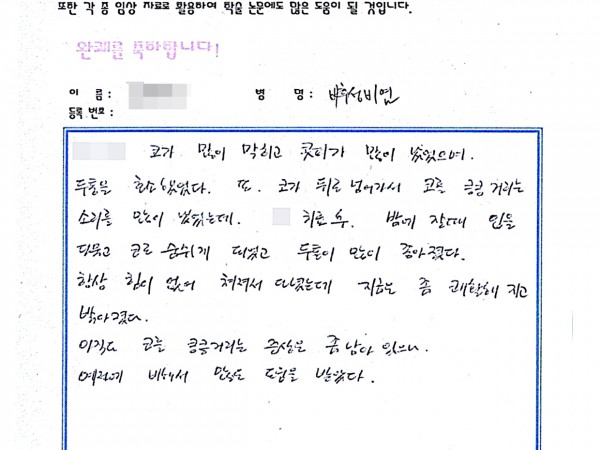 또한 각 종 임상 자료로 활용하여 학술 논문에도 많은 도움이 될 것입니다.
완쾌를 축하합니다!
이 름 : 병 명 : 만성비염
등록 번호 :
코가 많이 막히고 콧피가 많이 났었으며.
두통을 호소했었다. 또. 코가 뒤로 넘어가서 코를 킁킁 거리는
소리를 많이 냈었는데. 치료 후. 밤에 잘때 입을
다물고 코로 숨쉬게 되었고 두통이 많이 좋아졌다.
항상 힘이 없어 쳐져서 다녔는데 지금은 좀 쾌활해 지고
밝아졌다.
아직도 코를 킁킁거리는 증상은 좀 남아 있으나.
예전에 비해서 많은 도움을 받았다.